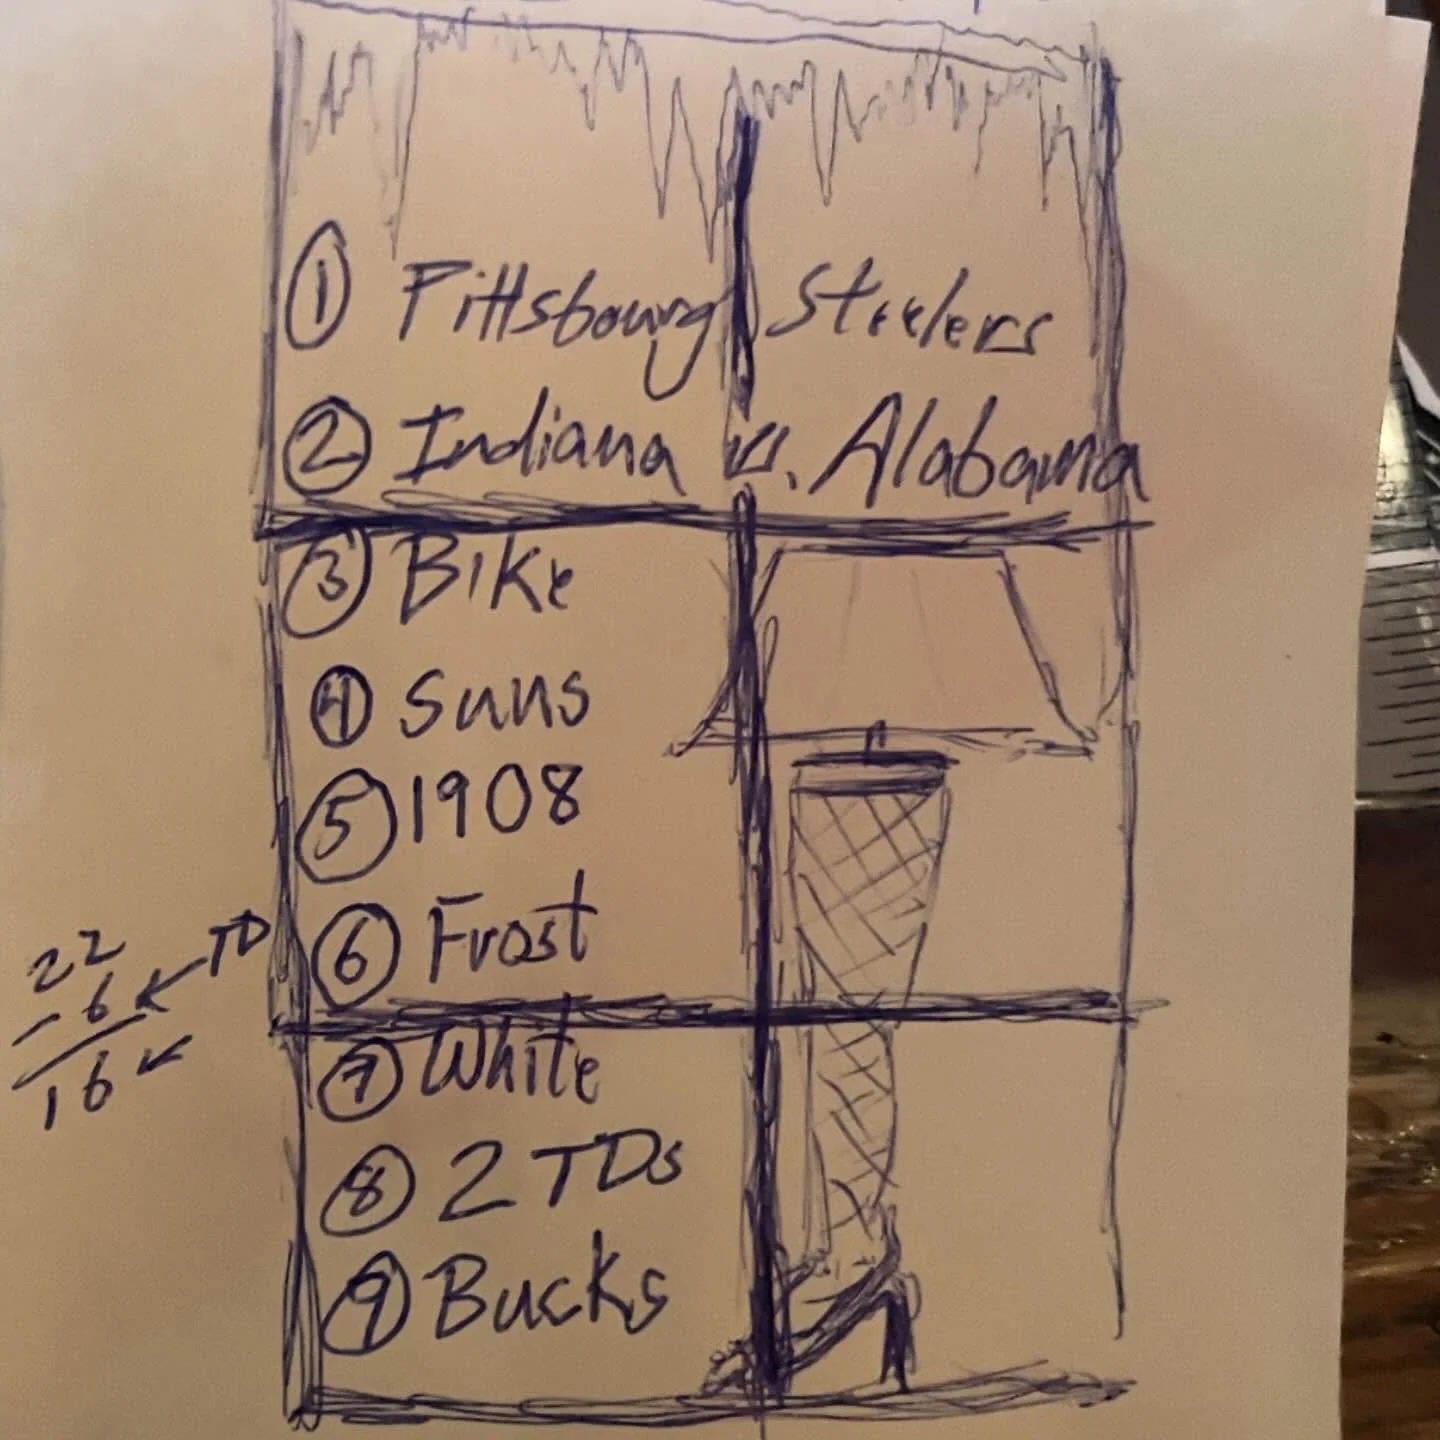 ① Pittsbourg Steelers
② Indiana vs. Alabama
③ Bike
④ Suns
⑤ 1908
⑥ Frost
22
- 6 ← TD
16 ←
⑦ White
⑧ 2 TDs
⑨ Bucks